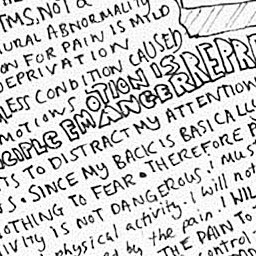 TMS, NOT A
URAL ABNORMALITY
ON FOR PAIN IS MYLD
DEPRIVATION
LESS CONDITION CAUSED
MOTIONS
OTION IS REPRE
CIPLE EM ANGER
TS TO DISTRACT MY ATTENTION
S. SINCE MY BACK IS BASICALL
OTHING TO FEAR. THEREFORE P
IVITY IS NOT DANGEROUS. i MUST
physical activity. I will not
by the pain. I WILL
THE PAIN TO
control